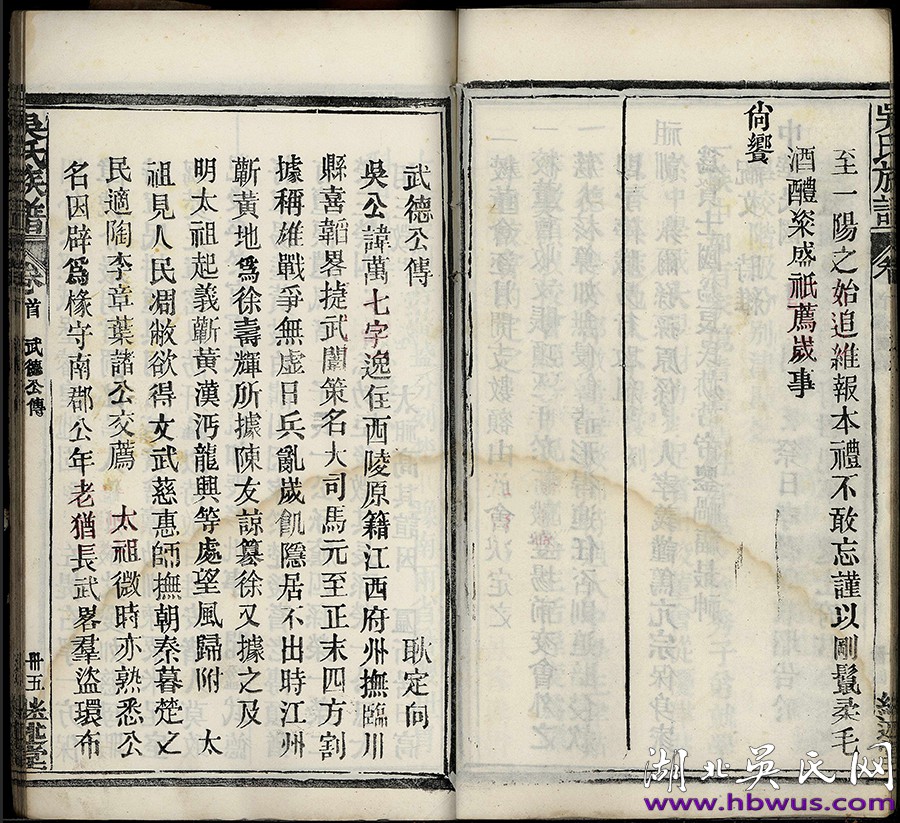 至一陽之始追維報本禮不敢忘謹以剛鬣柔毛
酒醴粢盛祇薦歲事
尙饗
吳氏族譜
卷首
武德公傳
卌五
武德公傳
耿定向
吳公諱萬七字逸任西陵原籍江西府州撫臨川
縣喜韜畧捷武闈策名大司馬元至正末四方割
據稱雄戰爭無虛日兵亂歲飢隱居不出時江州
蘄黃地爲徐壽輝所據陳友諒簒徐又據之及
明太祖起義蘄黃漢沔龍興等處望風歸附 太
祖見人民凋敝欲得文武慈惠師撫朝秦暮楚之
民適陶李章葉諸公交薦 太祖微時亦熟悉公
名因辟爲椽守南郡公年老猶長武畧羣盜環布
湖北吳氏网
www.hbwus.com